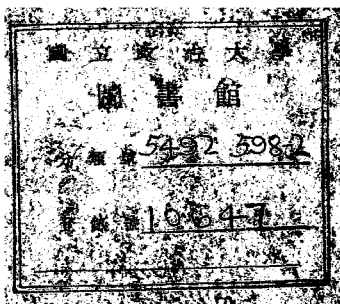 國立政治大學
圖書館
分類號 5492 398-2
登錄號 10647